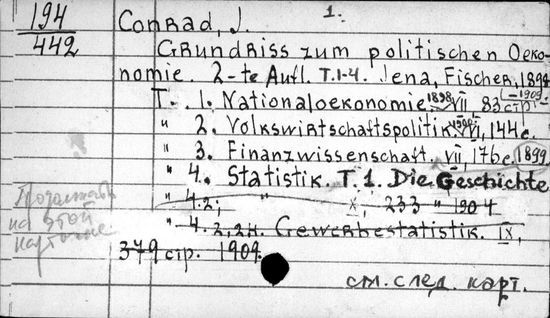 194
442
1.
Conrad, J.
Grundriss zum politischen Oeko-
nomie. 2-te Aufl. T.1-4. Jena, Fischer, 1894
(-1909)
T. 1. Nationaloekonomie 1898 VII 83 стр.
" 2. Volkswirtschaftspolitik. VI, 144 c.
" 3. Finanzwissenschaft. VII, 176 c. 1899
" 4. Statistik. T. 1. Die Geschichte
" 4.2; X, 233 " 1904
" 4. 2, 2н. Gewerbestatistik. IX,
379 стр. 1909.
Продолжать
на этой
карточке
см. след. карт.